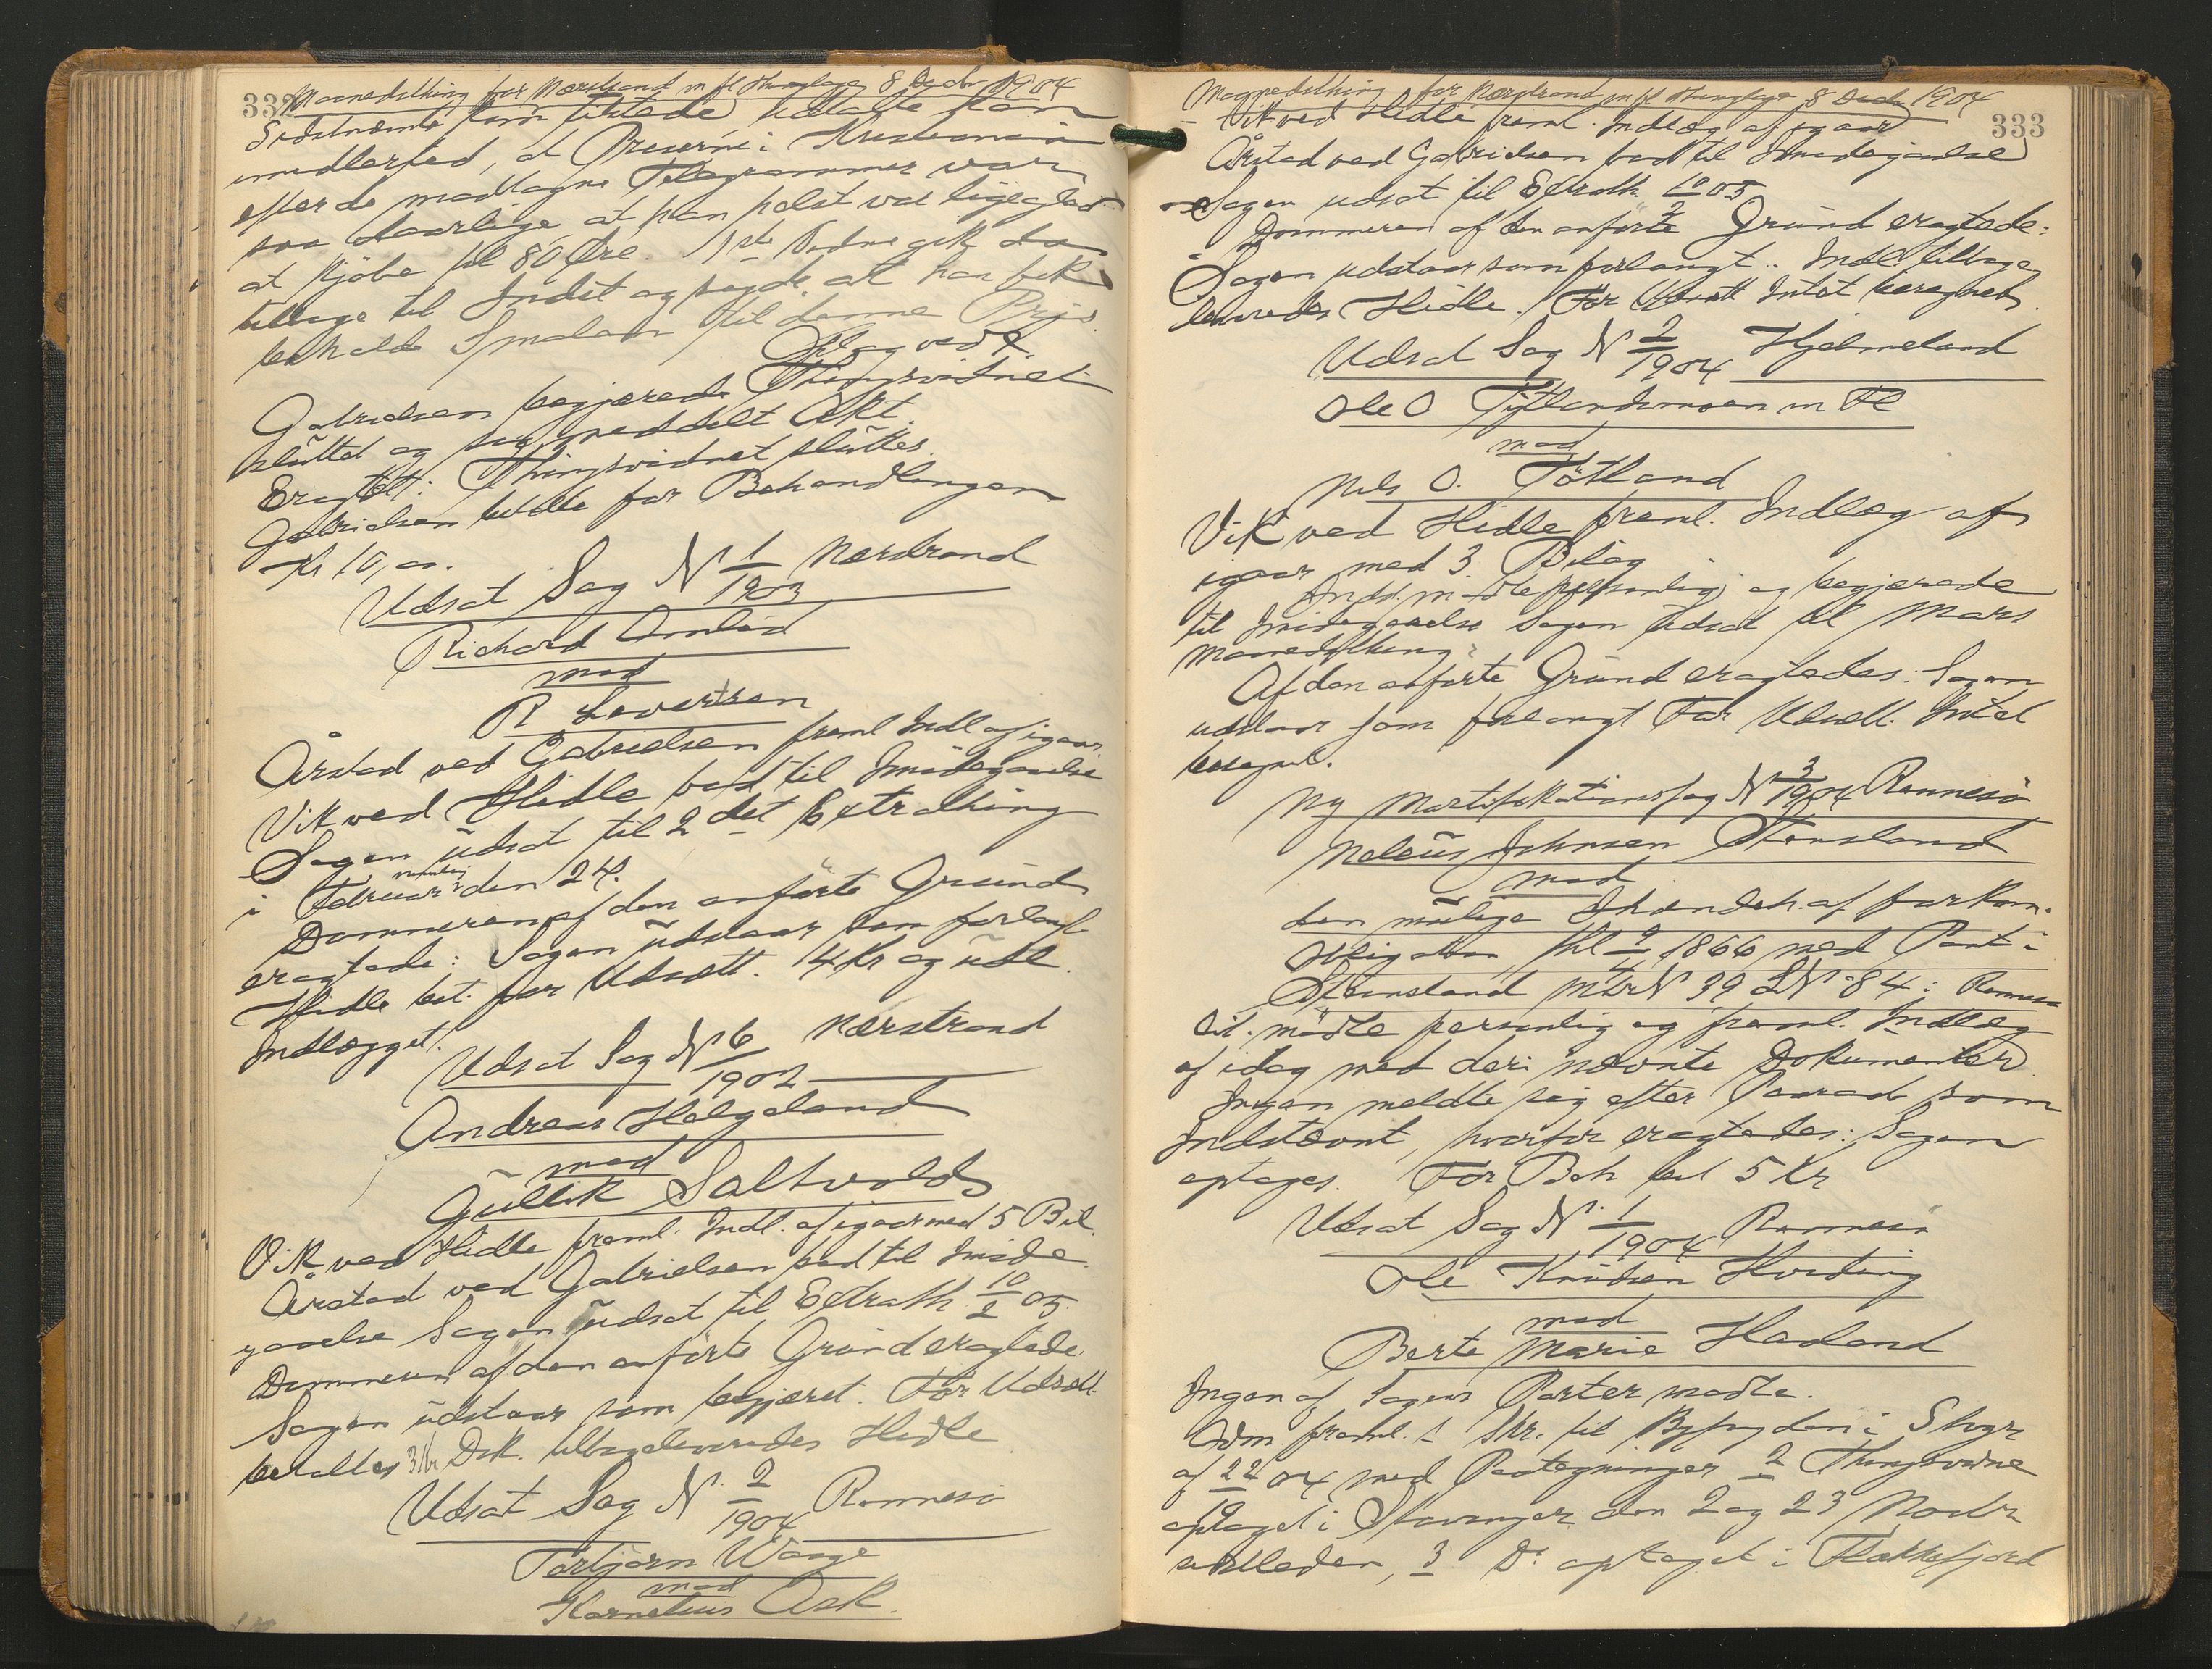 332
Maanedsthing for Nærstrand m fl Thinglage 8 Decbr 1904
Sidstnævnte kom tilstede udtalte han
imidlertid, at Priserne i Kristiania
efter de modtagne Telegrammer var
saa daarlige, at han helst var ligeglad
at kjøbe til 80 Øre. 1ste Vidne gik da
tilbage til Indst og sagde at han fik
beholde Smalen til denne Pris.
Gabrielsen begjærede Thingsvidnet
sluttet og sig meddelt Akt.
Eragtet: Thingsvidnet sluttes.
Gabrielsen betalte for Behandlingen
Kr 10,00.
Udsat Sag N 1/1903 Nærstrand
Richard Amlid
mod
R Severtsen
Årstad ved Gabrielsen freml Indl af igaar.
Vik ved Hidle bad til Imødegaaelse
Sagen udsat til 2det Extrathing
i Februar nemlig den 24.
Dommeren af den anførte Grund
eragtede: Sagen udstaar som forlangt
Hidle bet. for Udsætt. 4 Kr og udl.
Indlægget.
Udsat Sag N 6/1902 Nærstrand
Andreas Helgeland
mod
Gullik Saltvold
Vik ved Hidle freml. Indl. af igaar med 5 Bil.
Årstad ved Gabrielsen bad til Imøde
gaaelse Sagen udsat til Extrath 10/2 05.
Dommeren af den anførte Grund eragtede
Sagen udstaar som begjæret. For Udsætt.
betaltes 3 Kr Dok. tilbageleveredes Hidle
Udsat Sag N. 2/1904 Rennesø
Torbjørn Waage
mod
Kornelius Ask.
333
Maanedsthing for Nærstrand m fl Thinglage 8 Decbr 1904
Vik ved Hidle freml. Indlæg af igaar
Årstad ved Gabrielsen bad til Imødegaaelse
Sagen udsat til Extrath 10/2 05
Dommeren af den anførte Grund eragtede:
Sagen udstaar som forlangt. Indl. tilbage
leveredes Hidle. For Udsætt Intet beregnet.
Udsat Sag N 2/1904 Hjelmeland
Ole O Tytlandsmoen m Fl
mod
Nils O. Tøtland
Vik ved Hidle freml. Indlæg af
igaar med 3 Bilag
Indst mødte personlig og begjærede
til Imødegaaelse Sagen udsat til Mars
Maanedsthing.
Af den anførte Grund eragtedes: Sagen
udstaar som forlangt For Udsætt. Intet
beregnet.
Ny Mortifikationssag N 3/1904 Rennesø
Neleus Johnsen Stensland
mod
den mulige Ihændeh. af forkom.
Obligation, thl 1866 med Pant i
Steinsland MtrN 39 LN 84 i Rennesø
Cit. mødte personlig og freml. Indlæg
af idag med deri nævnte Dokumenter
Ingen meldte sig efter Paaraab som
Indstævnt, hvorfor eragtedes: Sagen
optages. For Beh bet 5 Kr
Udsat Sag N. 1/1904 Rennesø
Ole Knudsen Hviding
mod
Berte Marie Hadland
Ingen af Sagens Parter mødte.
Adm freml. 1 Skr. til Byfogden i Stvgr
af 22/10 04 med Paategninger 2 Thingsvidne
optaget i Stavanger den 2 og 23 Novbr
sidstleden, 3 Do optaget i Flekkefjord